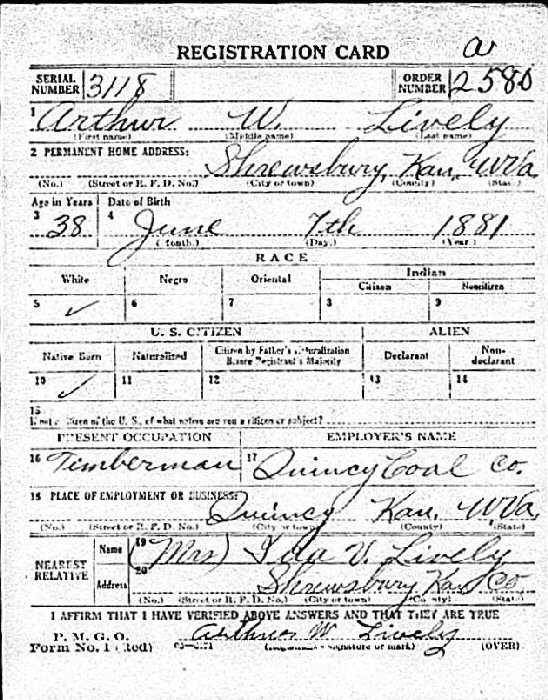 REGISTRATION CARD
SERIAL NUMBER 3118 ORDER NUMBER 2580
1 Arthur W. Lively
(First name) (Middle name) (Last name)
2 PERMANENT HOME ADDRESS:
Shrewsbury Kan. WVa
(No.) (Street or R. F. D. No.) (City or town) (County) (State)
Age in Years Date of Birth
3 38 4 June 7th 1881
(Month.) (Day.) (Year.)
RACE
White Negro Oriental Indian
Citizen Noncitizen
5 ✓ 6 7 8 9
U. S. CITIZEN ALIEN
Native Born Naturalized Citizen by Father's Naturalization Before Registrant's Majority Declarant Non-declarant
10 ✓ 11 12 13 14
15
If not a citizen of the U. S., of what nation are you a citizen or subject?
PRESENT OCCUPATION EMPLOYER'S NAME
16 Timberman 17 Quincy Coal Co.
18 PLACE OF EMPLOYMENT OR BUSINESS:
Quincy Kan. WVa
(No.) (Street or R. F. D. No.) (City or town) (County) (State)
NEAREST RELATIVE
Name 19 (Mrs) Ida V. Lively
Address 20 Shrewsbury Kan Co
(No.) (Street or R. F. D. No.) (City or town) (County) (State)
I AFFIRM THAT I HAVE VERIFIED ABOVE ANSWERS AND THAT THEY ARE TRUE
P. M. G. O.
Form No. 1 (Red) Arthur W Lively
(Registrant's signature or mark) (OVER)